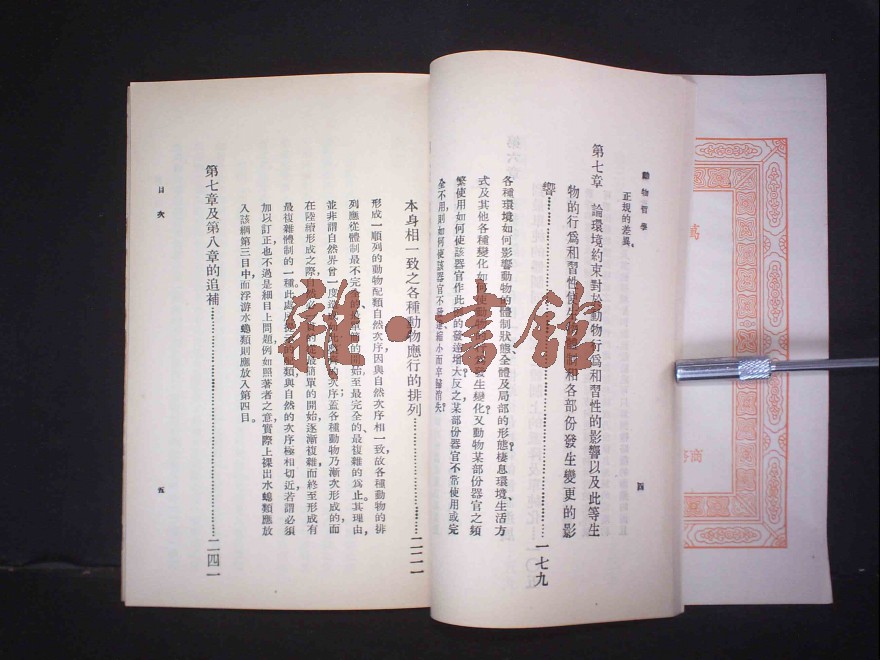 動物哲學
正規的差異。
第七章 論環境約束對於動物行爲和習性的影響以及此等生
物的行爲和習性使其體制和各部份發生變更的影
響 一七九
各種環境如何影響動物的體制狀態、全體及局部的形態棲息環境、生活方
式及其他各種變化如何使動物發生變化又動物某部份器官之頻
繁使用如何使該器官作此例的發達增大反之某部份器官不常使用或完
全不用,則如何使該器官不發達縮小而卒歸消失?
四
本身相一致之各種動物應行的排列 二二一
形成一順列的動物配類自然次序因與自然次序相一致,故各種動物的排
列應從體制最不完全的、最單簡的開始至最完全的、最複雜的爲止其理由,
並非謂自然界曾一度次序;蓋各種動物乃漸次形成的,而
在陸續形成之際自然必從最簡單的開始,逐漸複雜,而終至形成有
最複雜體制的一種。此處所配類與自然的次序極相切近,若謂必須
加以訂正,也不過是細目上問題,例如照著者之意,實際上裸出水螅類應放
入該綱第三目中而浮游水螅類則應放入第四目。
第七章及第八章的追補 二四一
目次
五
雜·書館
萬
商務